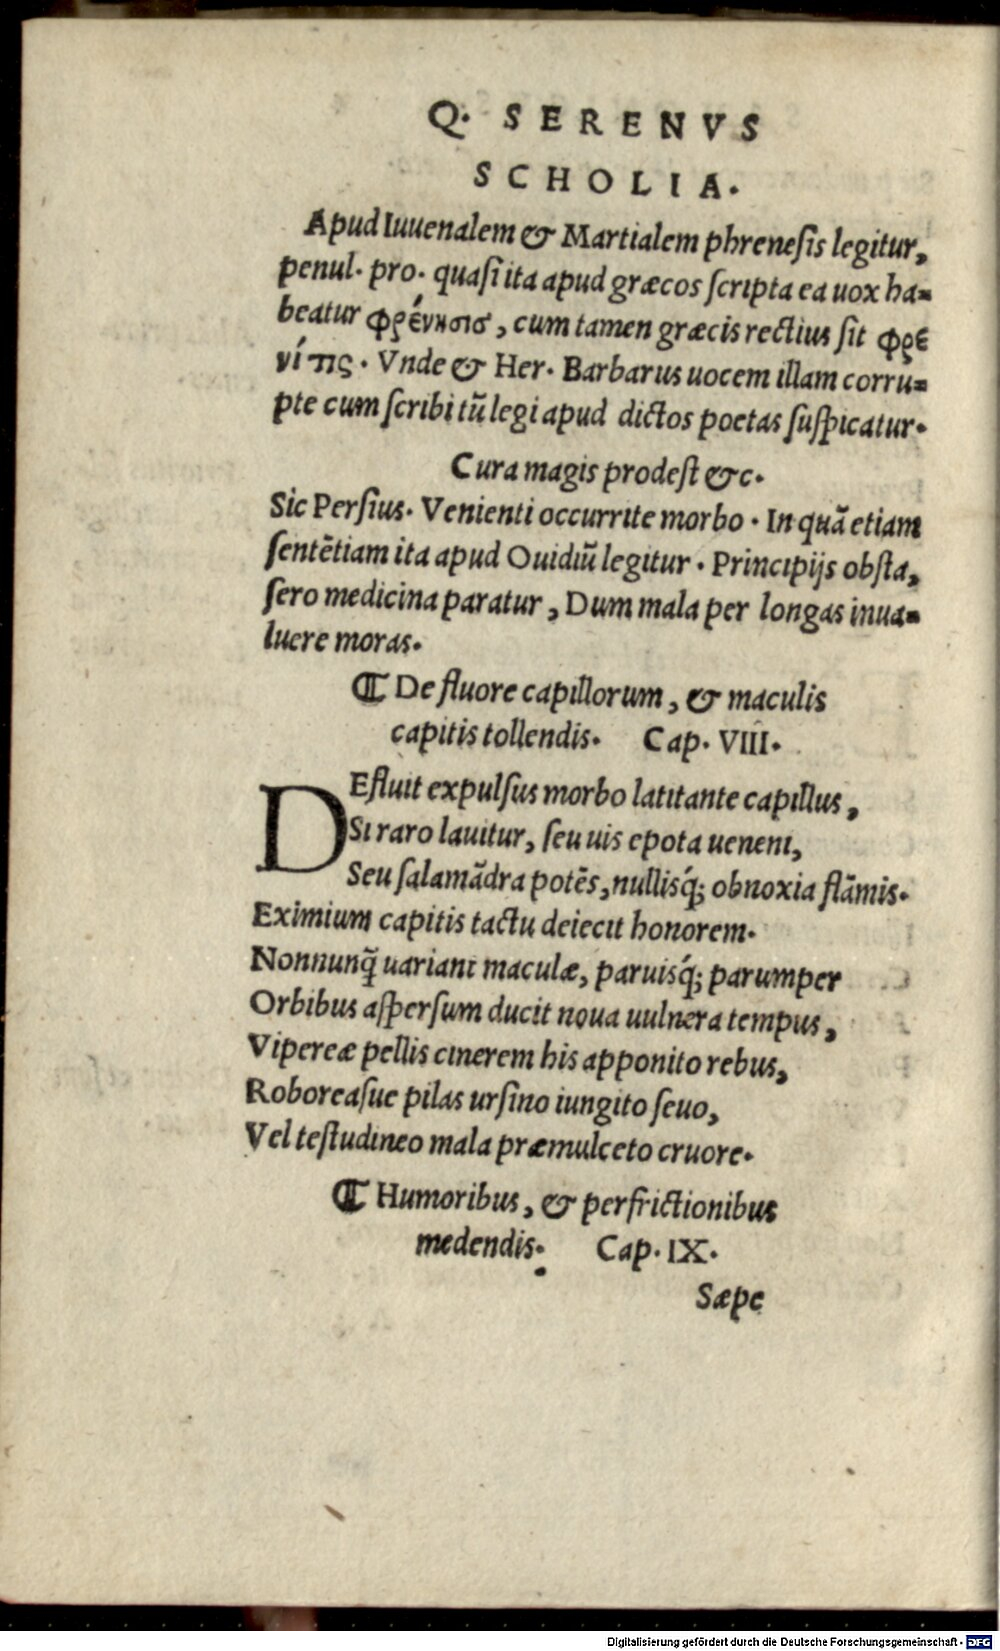 Q. SERENVS
SCHOLIA.
Apud Iuuenalem & Martialem phreneſis legitur,
penul. pro. quaſi ita apud græcos ſcripta ea uox ha=
beatur φρένησισ, cum tamen græcis rectius ſit φρε
νίτις. Vnde & Her. Barbarus uocem illam corru=
pte cum ſcribi tū legi apud dictos poetas ſuſpicatur.
Cura magis prodeſt &c.
Sic Perſius. Venienti occurrite morbo. In quā etiam
ſentētiam ita apud Ouidiū legitur. Principijs obſta,
ſero medicina paratur, Dum mala per longas inua=
luere moras.
⁋ De fluore capillorum, & maculis
capitis tollendis. Cap. VIII.
DEfluit expulſus morbo latitante capillus,
Si raro lauitur, ſeu uis epota ueneni,
Seu ſalamādra potēs, nullisq́; obnoxia flāmis.
Eximium capitis tactu deiecit honorem.
Nonnunq̃ uariant maculæ, paruisq́; parumper
Orbibus aſperſum ducit noua uulnera tempus,
Vipereæ pellis cinerem his apponito rebus,
Roboreaſue pilas urſino iungito ſeuo,
Vel teſtudineo mala præmulceto cruore.
⁋ Humoribus, & perfrictionibus
medendis. Cap. IX.
Sæpe
Digitalisierung gefördert durch die Deutsche Forschungsgemeinschaft - DFG